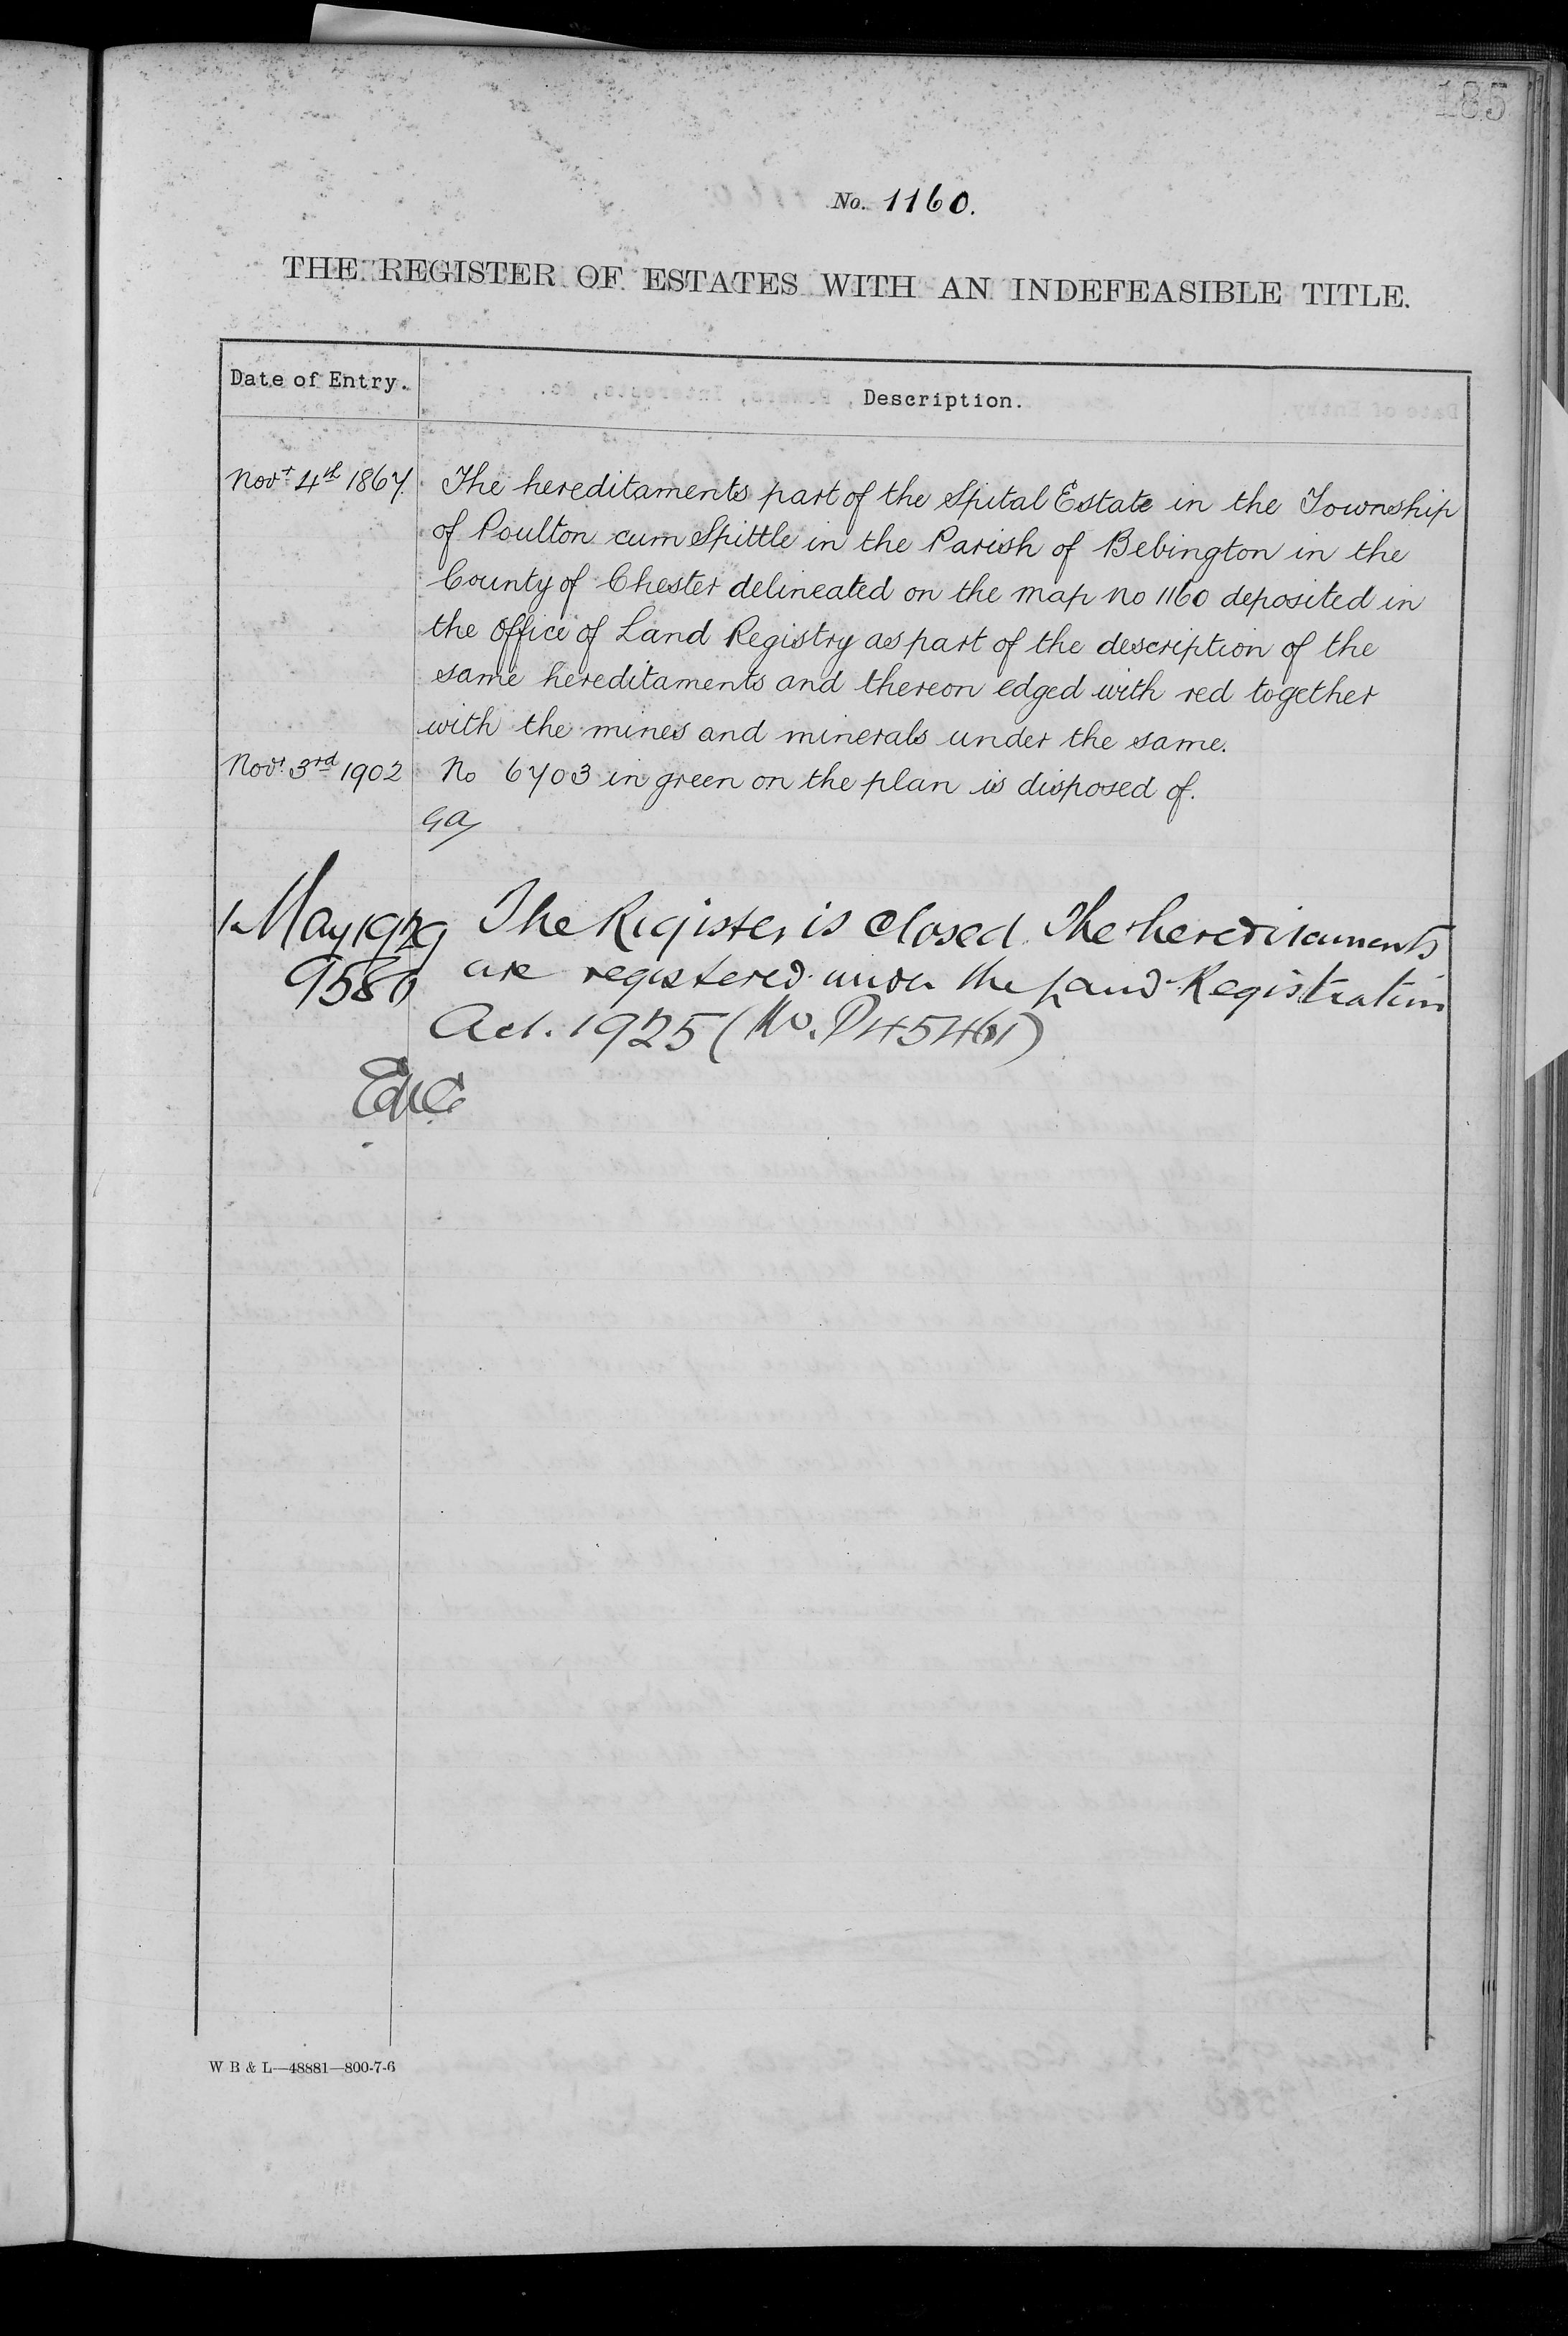 185
No. 1160.
THE REGISTER OF ESTATES WITH AN INDEFEASIBLE TITLE.
Date of Entry.
Description.
Novr 4th 1867. The hereditaments part of the Spital Estate in the Township
of Poulton cum Spittle in the Parish of Bebington in the
County of Chester delineated on the map no 1160 deposited in
the office of Land Registry as part of the description of the
same hereditaments and thereon edged with red together
with the mines and minerals under the same.
Novr 3rd 1902 No 6703 in green on the plan is disposed of.
GA
1 May 1929 The Register is closed. The hereditaments
9580 are registered under the Land Registration
Act. 1925 (No. P45461)
W B & L—48881—800-7-6